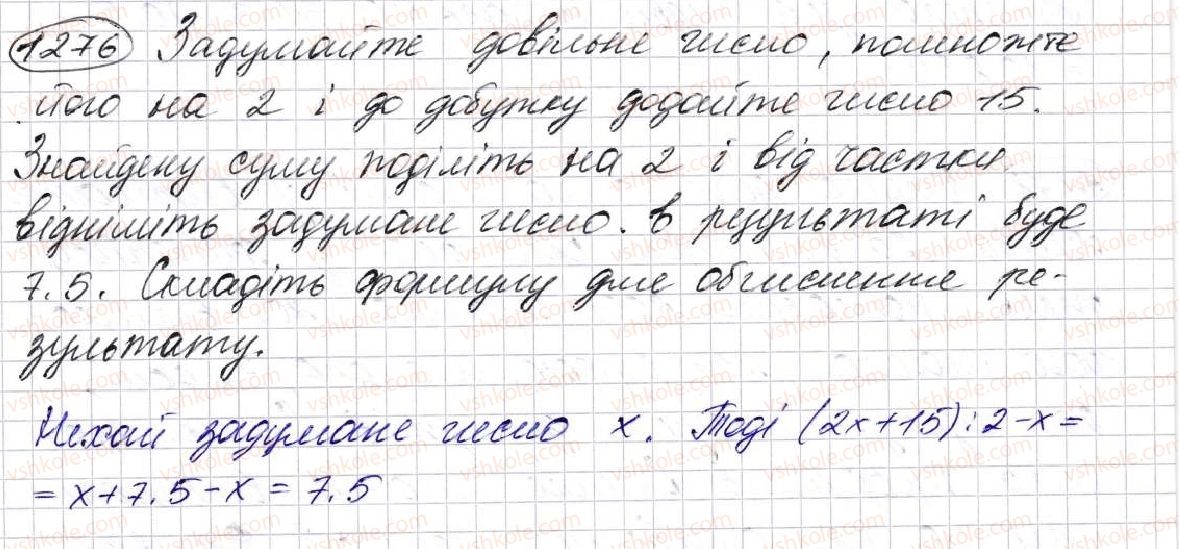 1276 Задумайте довільне число, помножте
його на 2 і до добутку додайте число 15.
Знайдену суму поділіть на 2 і від частки
відніміть задумане число. В результаті буде
7.5. Складіть формулу для обчислення ре-
зультату.
Нехай задумане число x. Тоді (2x+15):2-x=
=x+7.5-x=7.5